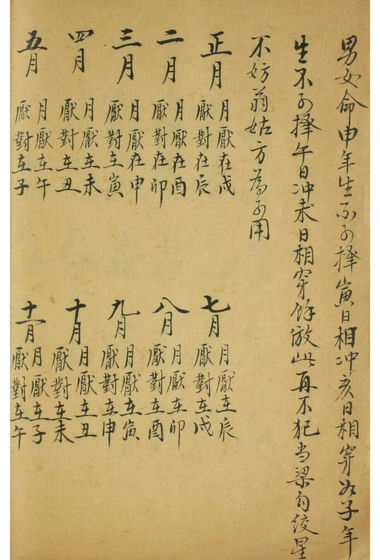 男女命申年生不可擇寅日相冲亥日相穿如子年
生不可擇午日冲未日相穿餘放此再不犯当梁勾绞星
不妨翁姑方為可用
正月
月厭在戌
厭對在辰
二月
月厭在酉
厭對在卯
三月
月厭在申
厭對在寅
四月
月厭在未
厭對在丑
五月
月厭在午
厭對在子
七月
月厭在辰
厭對在戌
八月
月厭在卯
厭對在酉
九月
月厭在寅
厭對在申
十月
月厭在丑
厭對在未
十一月
月厭在子
厭對在午